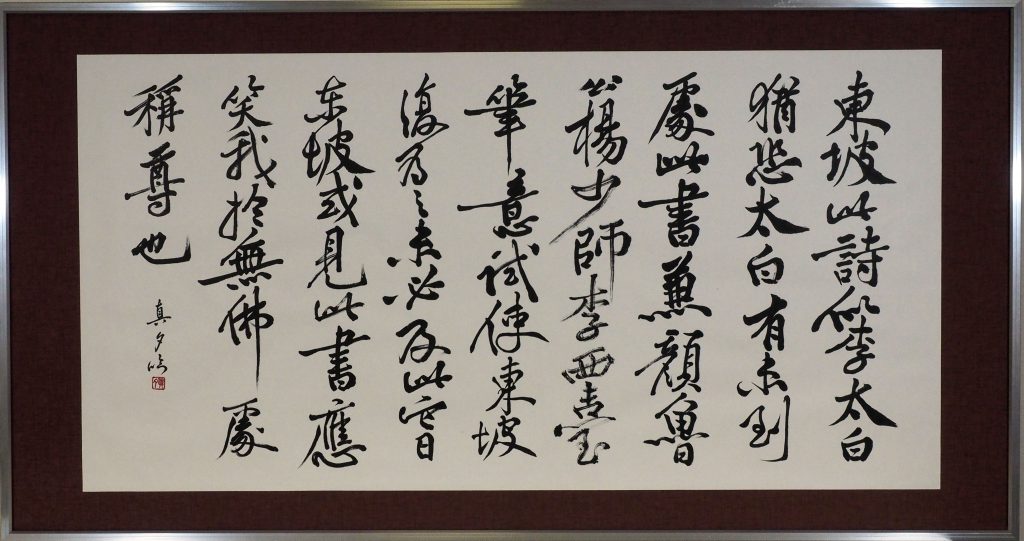 東坡此詩似李太白
猶恐太白有未到
處此書兼顏魯
公楊少師李西臺
筆意試使東坡
復為之未必及此它日
东坡或見此書應
笑我於無佛處
稱尊也
真夕臨